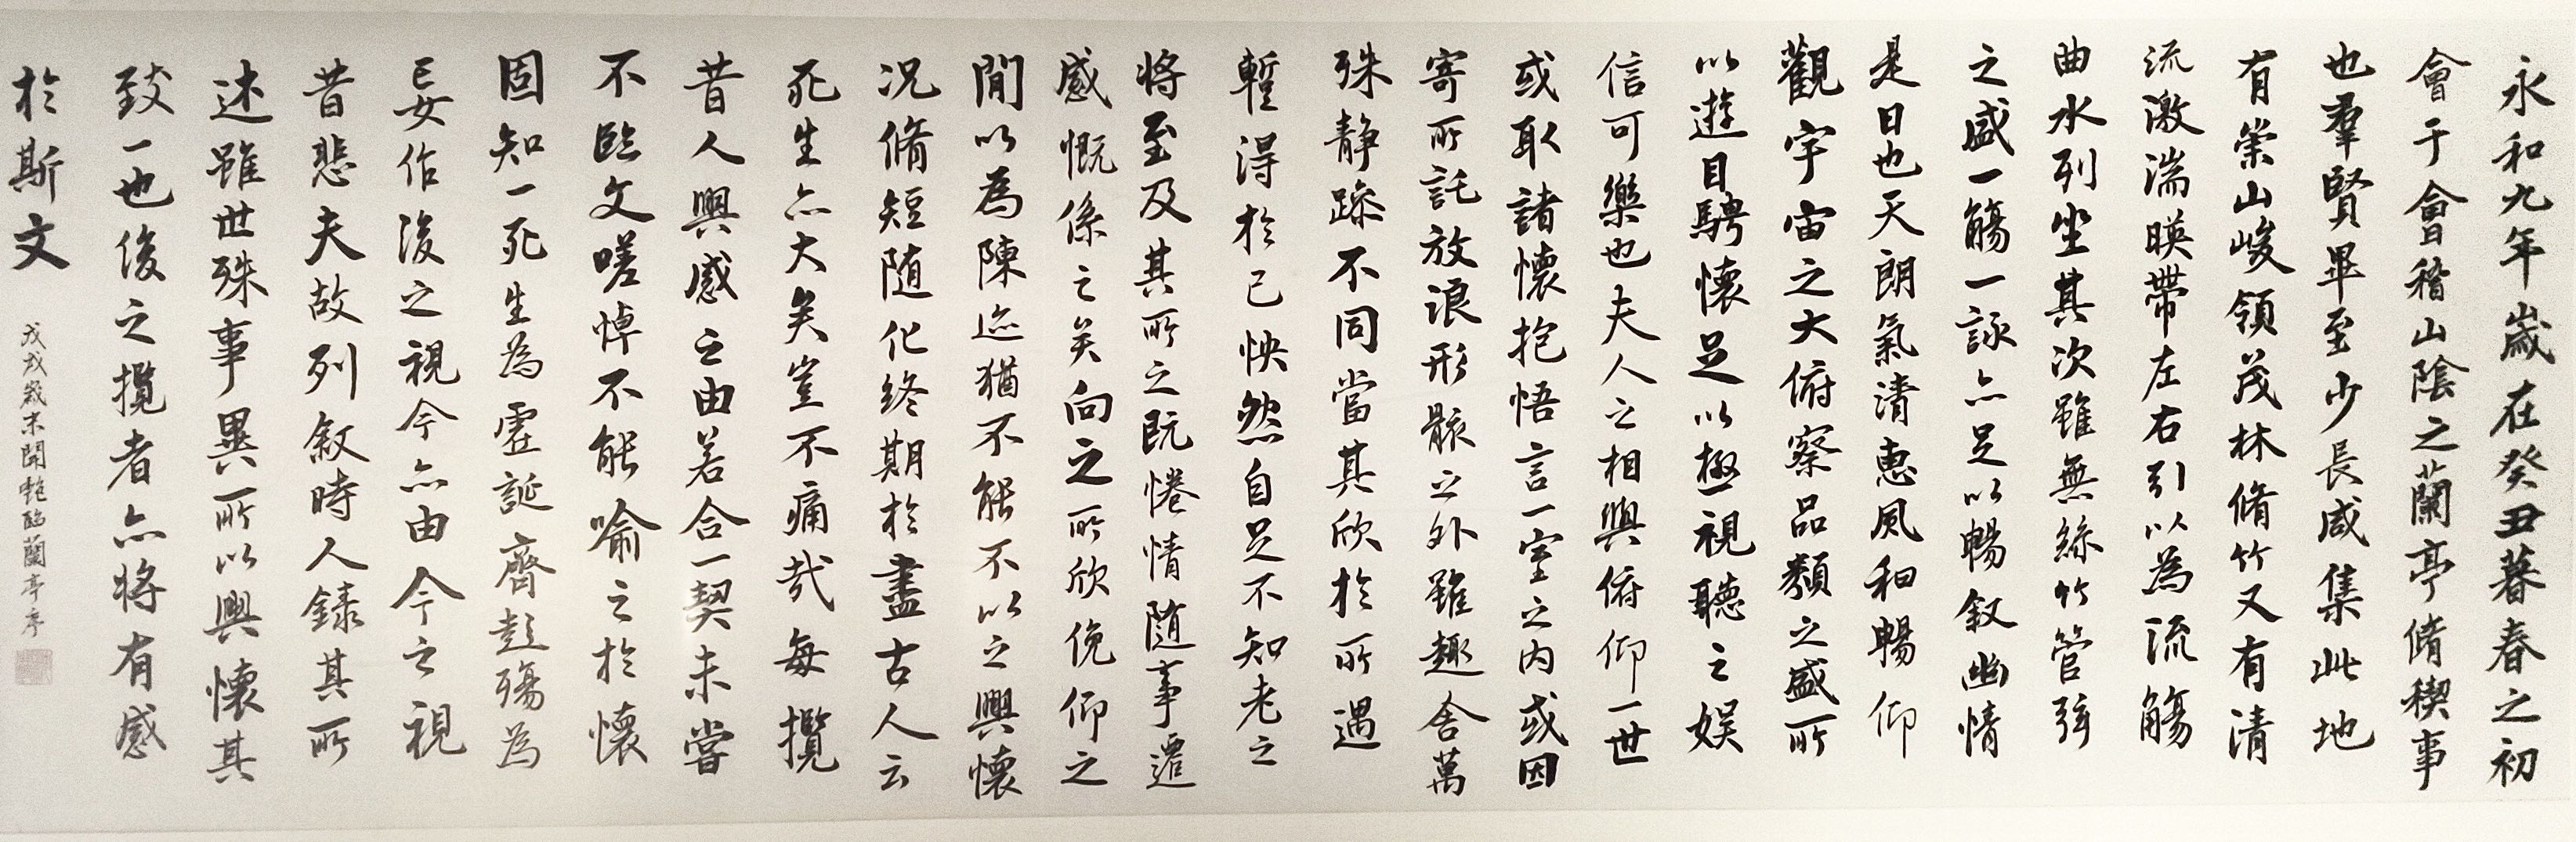 永和九年歲在癸丑暮春之初
會于會稽山陰之蘭亭脩稧事
也羣賢畢至少長咸集此地
有崇山峻領茂林脩竹又有清
流激湍暎帶左右引以為流觴
曲水列坐其次雖無絲竹管弦
之盛一觴一詠亦足以暢叙幽情
是日也天朗氣清惠風和暢仰
觀宇宙之大俯察品類之盛所
以遊目騁懷足以極視聽之娱
信可樂也夫人之相與俯仰一世
或取諸懷抱悟言一室之內或因
寄所託放浪形骸之外雖趣舍萬
殊静躁不同當其欣於所遇
暫得於己怏然自足不知老之
將至及其所之既惓情隨事遷
感慨係之矣向之所欣俛仰之
閒以為陳迹猶不能不以之興懷
况脩短随化終期於盡古人云
死生亦大矣豈不痛哉每攬
昔人興感之由若合一契未嘗
不臨文嗟悼不能喻之於懷
固知一死生為虛誕齊彭殤為
妄作後之視今亦由今之視
昔悲夫故列叙時人錄其所
述雖世殊事異所以興懷其
致一也後之攬者亦將有感
於斯文
戊戌歲末開艳臨蘭亭序